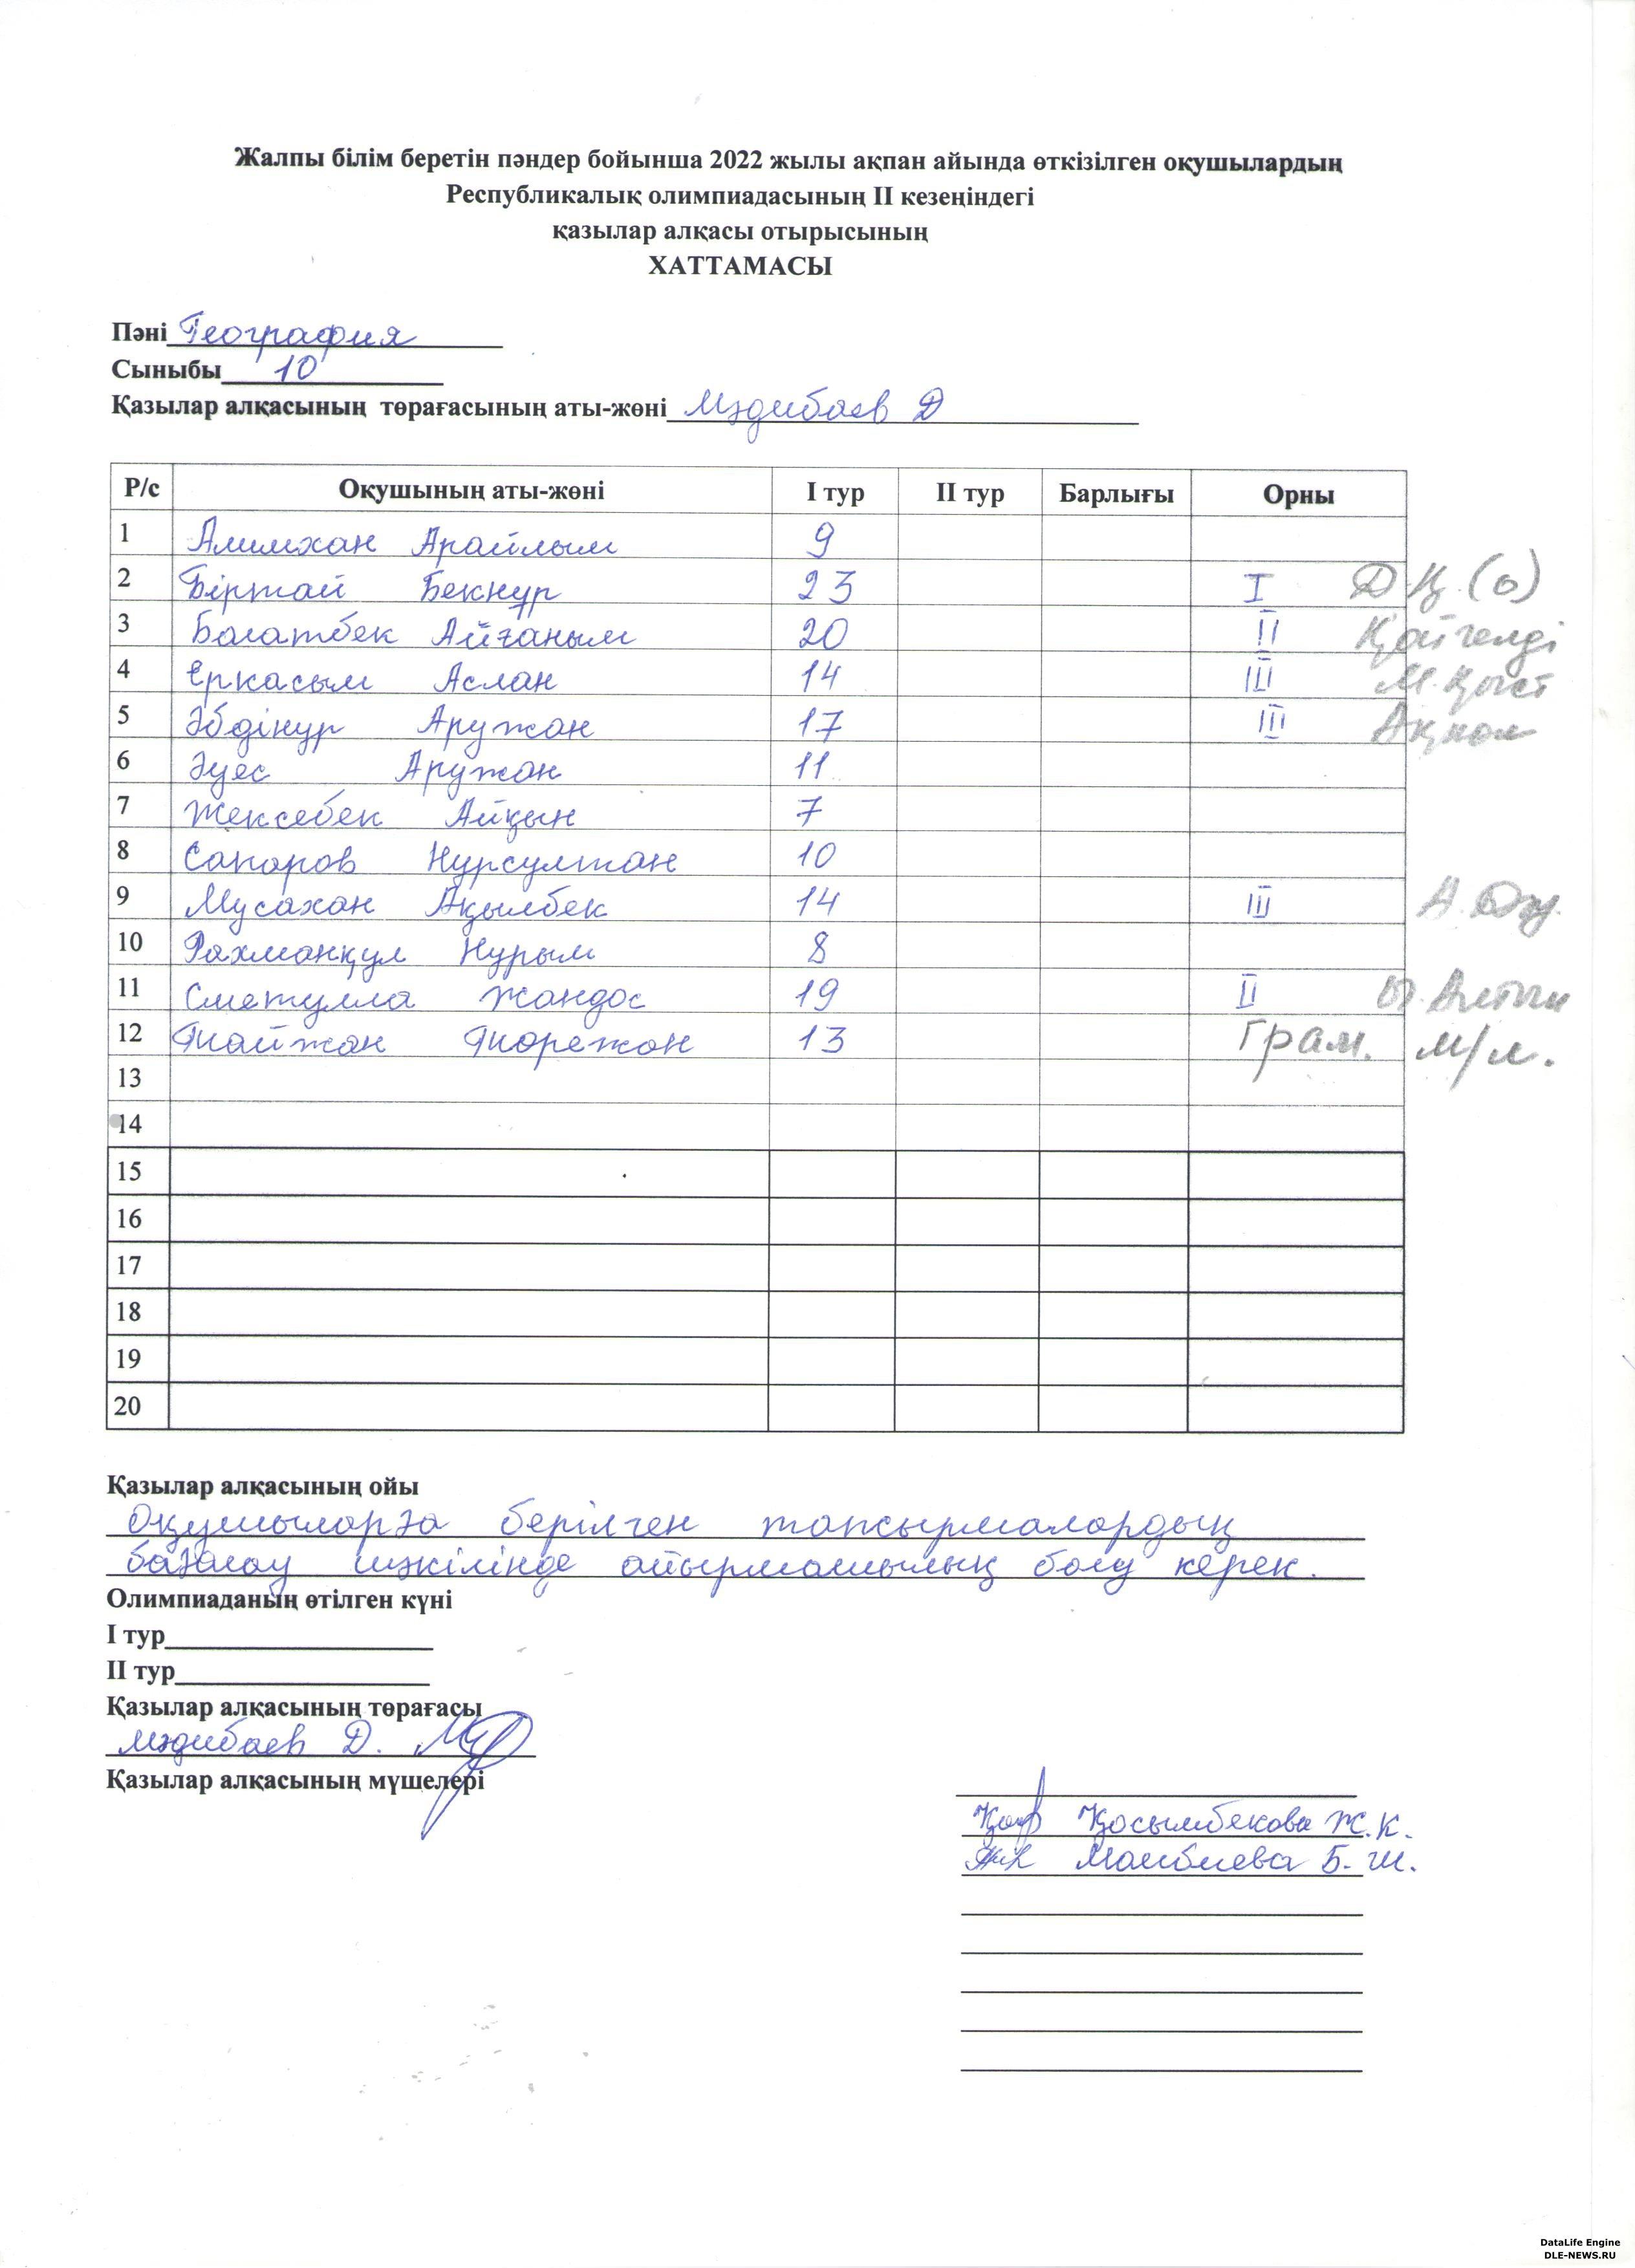 Жалпы білім беретін пәндер бойынша 2022 жылы ақпан айында өткізілген оқушылардың
Республикалық олимпиадасының II кезеңіндегі
қазылар алқасы отырысының
ХАТТАМАСЫ
Пәні География
Сыныбы 10
Қазылар алқасының төрағасының аты-жөні Мәдибаев Д
Р/с Оқушының аты-жөні I тур II тур Барлығы Орны
1 Алимхан Арайлым 9
2 Біртай Бекнұр 23 I Д.Қ. (о)
3 Болатбек Айғаным 20 II Қойгелді
4 Еркасым Аслан 14 III М.
5 Әбдінұр Аружан 17 III Ақжол
6 Әуес Аружан 11
7 Жексебек Айқын 7
8 Сапаров Нурсултан 10
9 Мусахан Ақылбек 14 III А.
10 Рахманқул Нұрым 8
11 Сметулла Жандос 19 II Ы. Алтын
12 Тайжан Төрежан 13 Грам. м/л.
13
14
15
16
17
18
19
20
Қазылар алқасының ойы
Оқушыларға берілген тапсырмалардың
бағалау шәкілінде айырмашылық болу керек.
Олимпиаданың өтілген күні
I тур
II тур
Қазылар алқасының төрағасы
Мәдибаев Д.
Қазылар алқасының мүшелері
Қосымбекова Ж.К.
Маибиева Б.Ш.
DataLife Engine
DLE-NEWS.RU